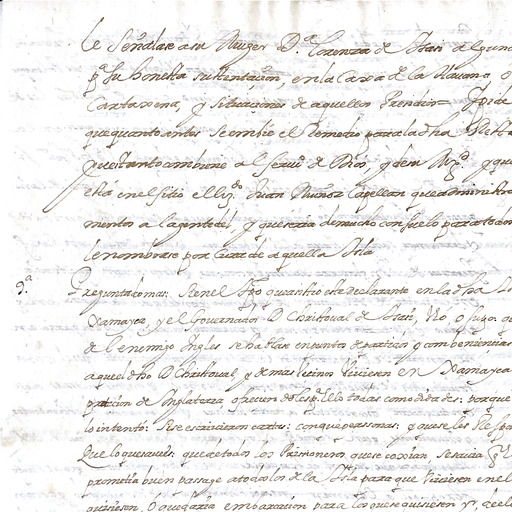 le señalase a su Muger D.ª Lorenza de Isasi alguna
p.ª su honesta sustentacion, en la caxa de la Havana, o
Cartaxena, y situaciones de aquellos Presidios
que quanto antes se embie el Remedio para la dha
que tanto combiene al seru.º de Dios, y de su Mg.d y que
está en el sitio el liz.do Juan Muñoz Capellan que administra
mentos a la gente del, y que seria de mucho consuelo para todos
le nombrase por Cura de aquella Isla
9.ª Preguntado mas: si en el tpo que asistio este declarante en la dha
Xamayca, y el Gouernador D Christoual de Isasi, vio, o supo
de el enemigo Ingles se hablase en puntos de partidos y combeniencias
aquel dho D Christoual, y demas vecinos viuiesen en Xamayca
de Inglaterra ofreciendoles p.ª ello todas comodidades: porque
lo intento: si se escriuieron cartas: con que personas: y que se les Respon
que lo que saue es: que de todos los Prisioneros que se coxian, se sauia
prometia buen passage a todos los de la Isla para que viuiesen en el
quisiesen, o que daria embarcacion para los que quisiesen yr